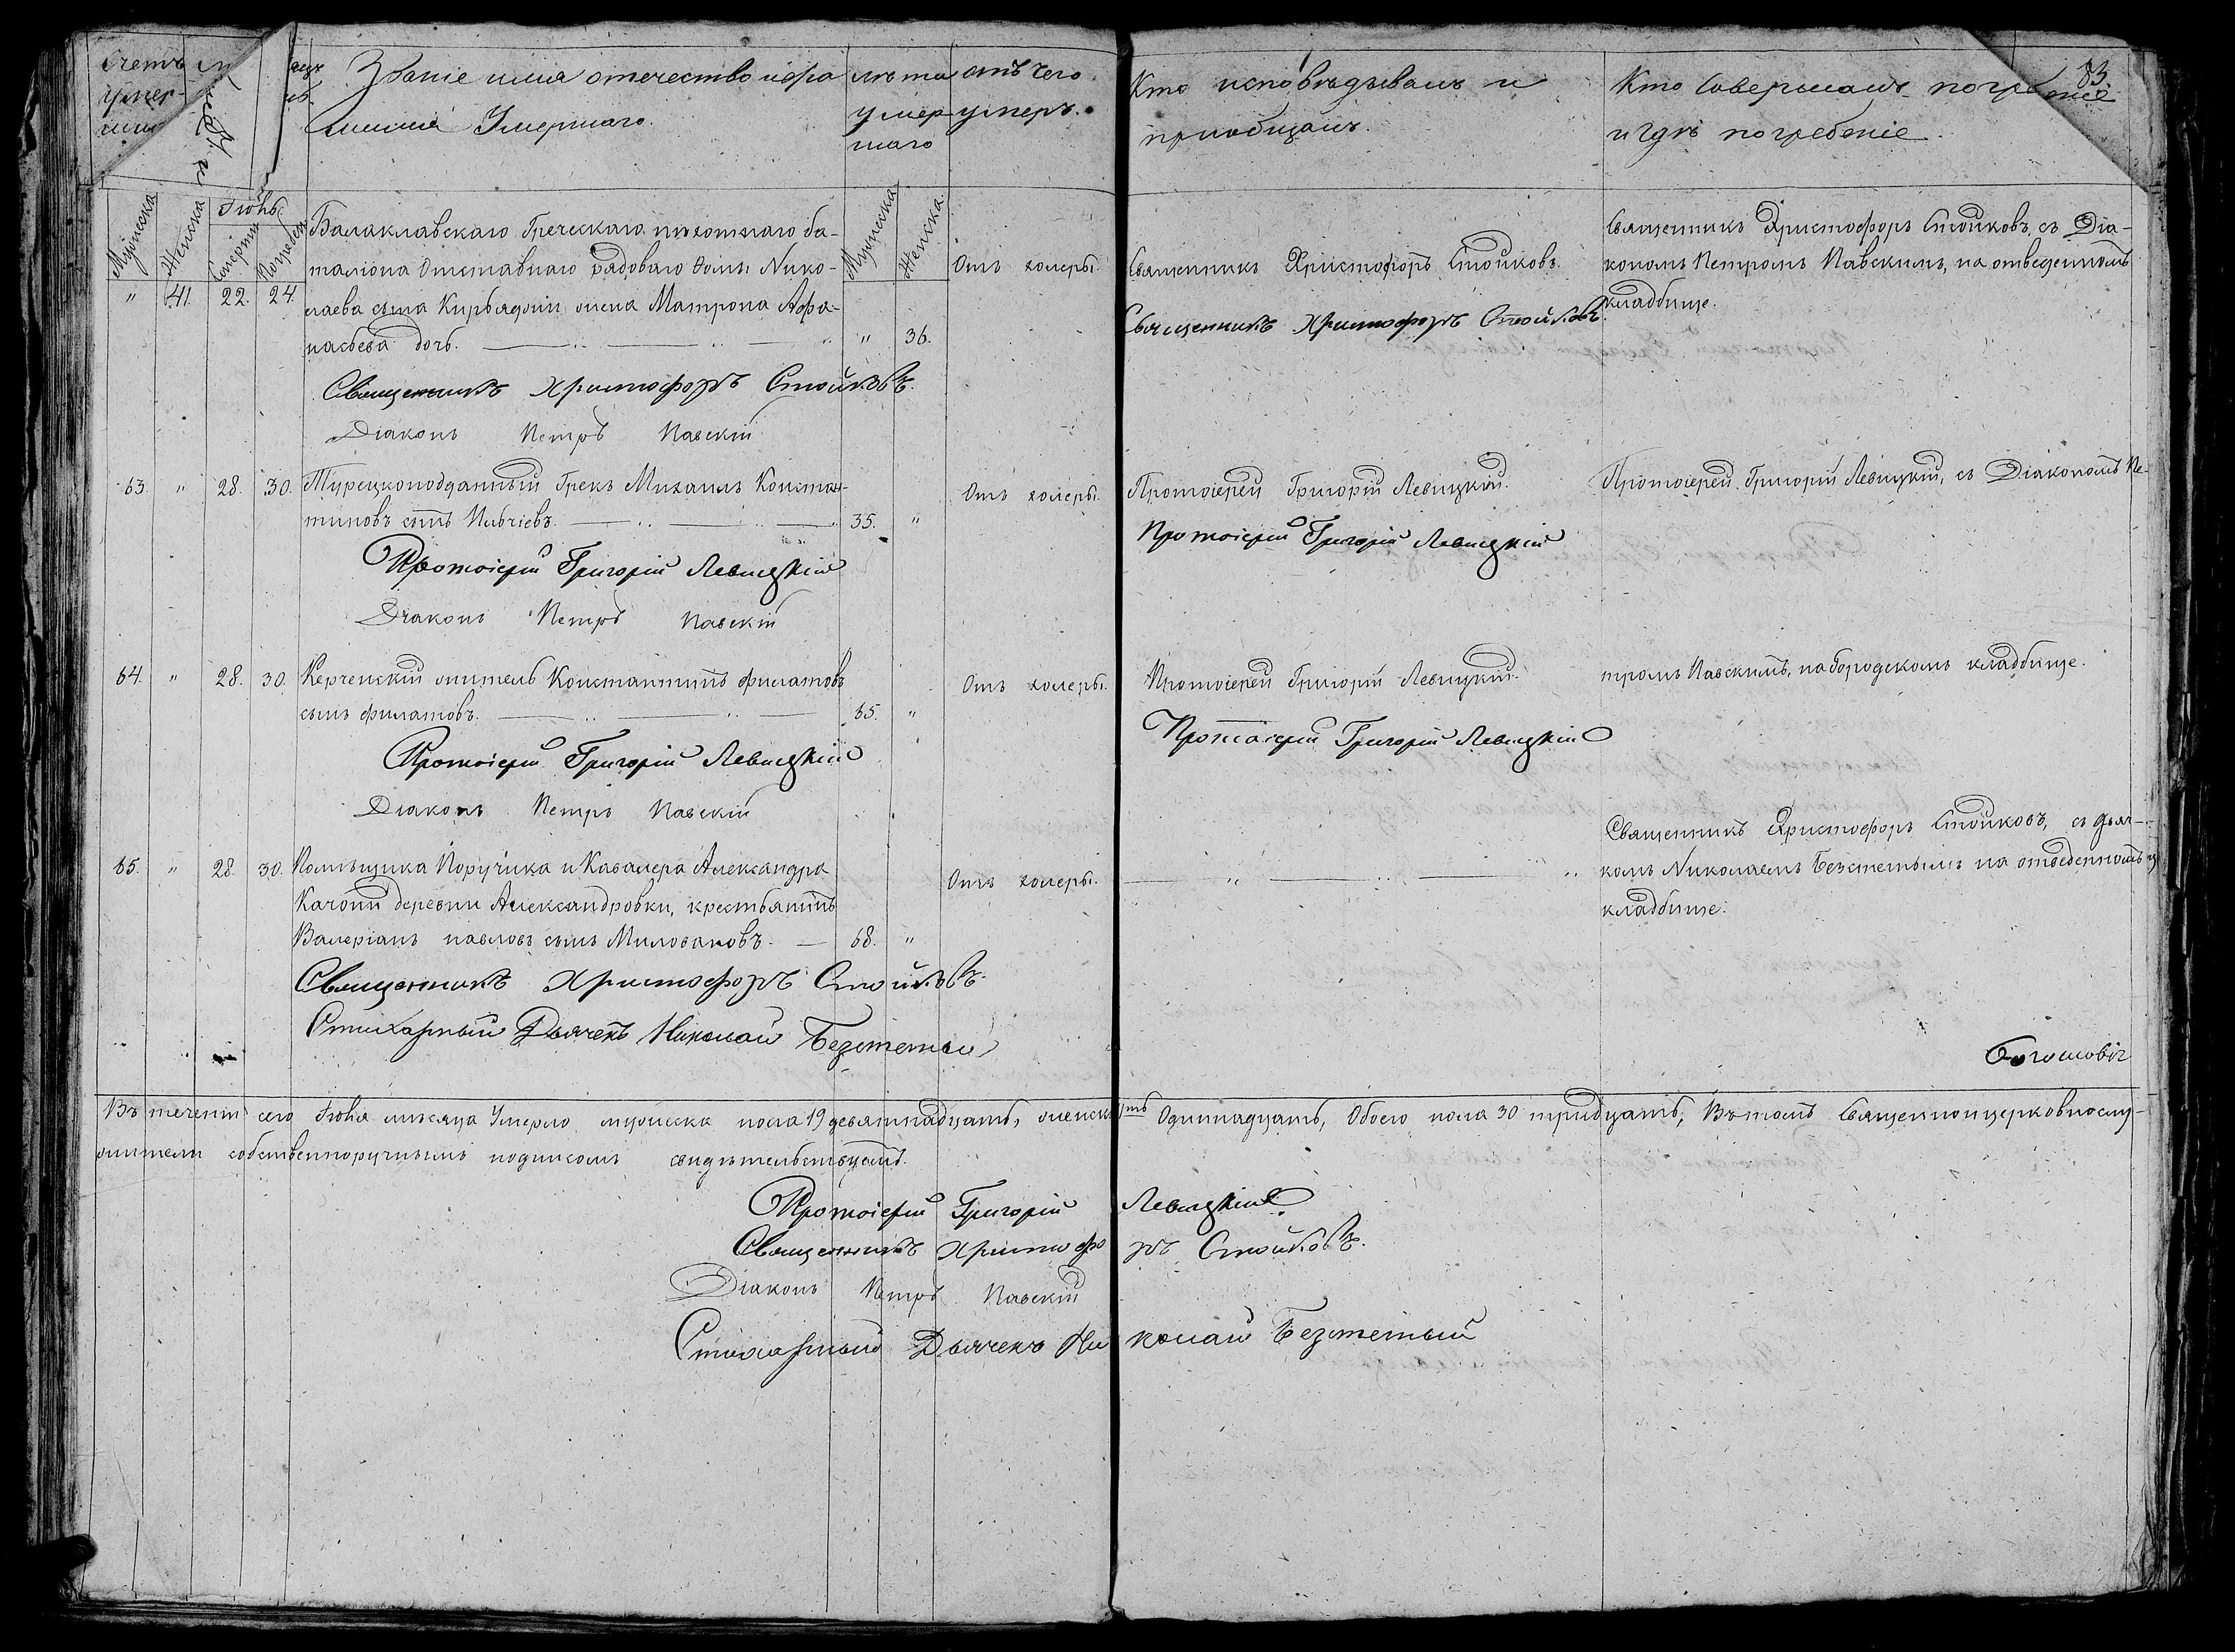 83
Счетъ
умер-
ши
Званіе имя отечество и фа
милія Умершаго.
лѣта
умер-
шаго
отъ чего
умеръ.
Кто исповѣдывалъ и
пріобщалъ.
Кто Совершалъ погре
ніе
и гдѣ погребеніе.
Мужеска
Женска
Іюнь
Смерти
Погребен
Мужеска
Женска
" 41. 22. 24.
Балаклавскаго Греческаго пѣхотнаго ба-
таліона Отставнаго рядоваго Ѳомы Нико-
лаева сына Кирьядои жена Матрона Афа-
насьева дочь. " 36.
Отъ холеры.
Священникъ Христофоръ Стойковъ.
Священникъ Христофоръ Стойковъ.
Священникъ Христофоръ Стойковъ, съ Діа-
кономъ Петромъ Павскимъ, на отведенномъ
кладбище.
Священникъ Христофоръ Стойковъ.
Діаконъ Петръ Павскій
63. " 28. 30.
Турецкоподданный Грекъ Михаилъ Констан-
тиновъ сынъ Пибчіевъ. 35. "
Отъ холеры.
Протоіерей Григорій Левицкій.
Протоіерей Григорій Левицкій
Протоіерей Григорій Левицкій, съ Діакономъ Пе-
Протоіерей Григорій Левицкій
Діаконъ Петръ Павскій
64. " 28. 30.
Керченскій житель Константинъ филатовъ
сынъ филатовъ. 65. "
Отъ холеры.
Протоіерей Григорій Левицкій.
Протоіерей Григорій Левицкій
тромъ Павскимъ, на Городскомъ кладбище.
Протоіерей Григорій Левицкій
Діаконъ Петръ Павскій
65. " 28. 30.
Помѣщика Поручика и Кавалера Александра
Качони деревни Александровки, крестьянинъ
Валеріанъ павловъ сынъ Миловановъ. 68. "
Отъ холеры.
Священникъ Христофоръ Стойковъ, съ дьяч-
комъ Николаемъ Безсчетнымъ на отведенномъ
кладбище.
Священникъ Христофоръ Стойковъ.
Стихарный Дьячекъ Николай Безсчетный
Въ теченіи сего Іюня мѣсяца Умерло мужеска пола 19 девятнадцать, женска Одинадцать, Обоего пола 30 тридцать; Въ томъ Священноцерковнослу-
жители собственноручнымъ подписомъ свидѣтельствуемъ.
Протоіерей Григорій Левицкій.
Священникъ Христофоръ Стойковъ.
Діаконъ Петръ Павскій
Стихарный Дьячекъ Николай Безсчетный